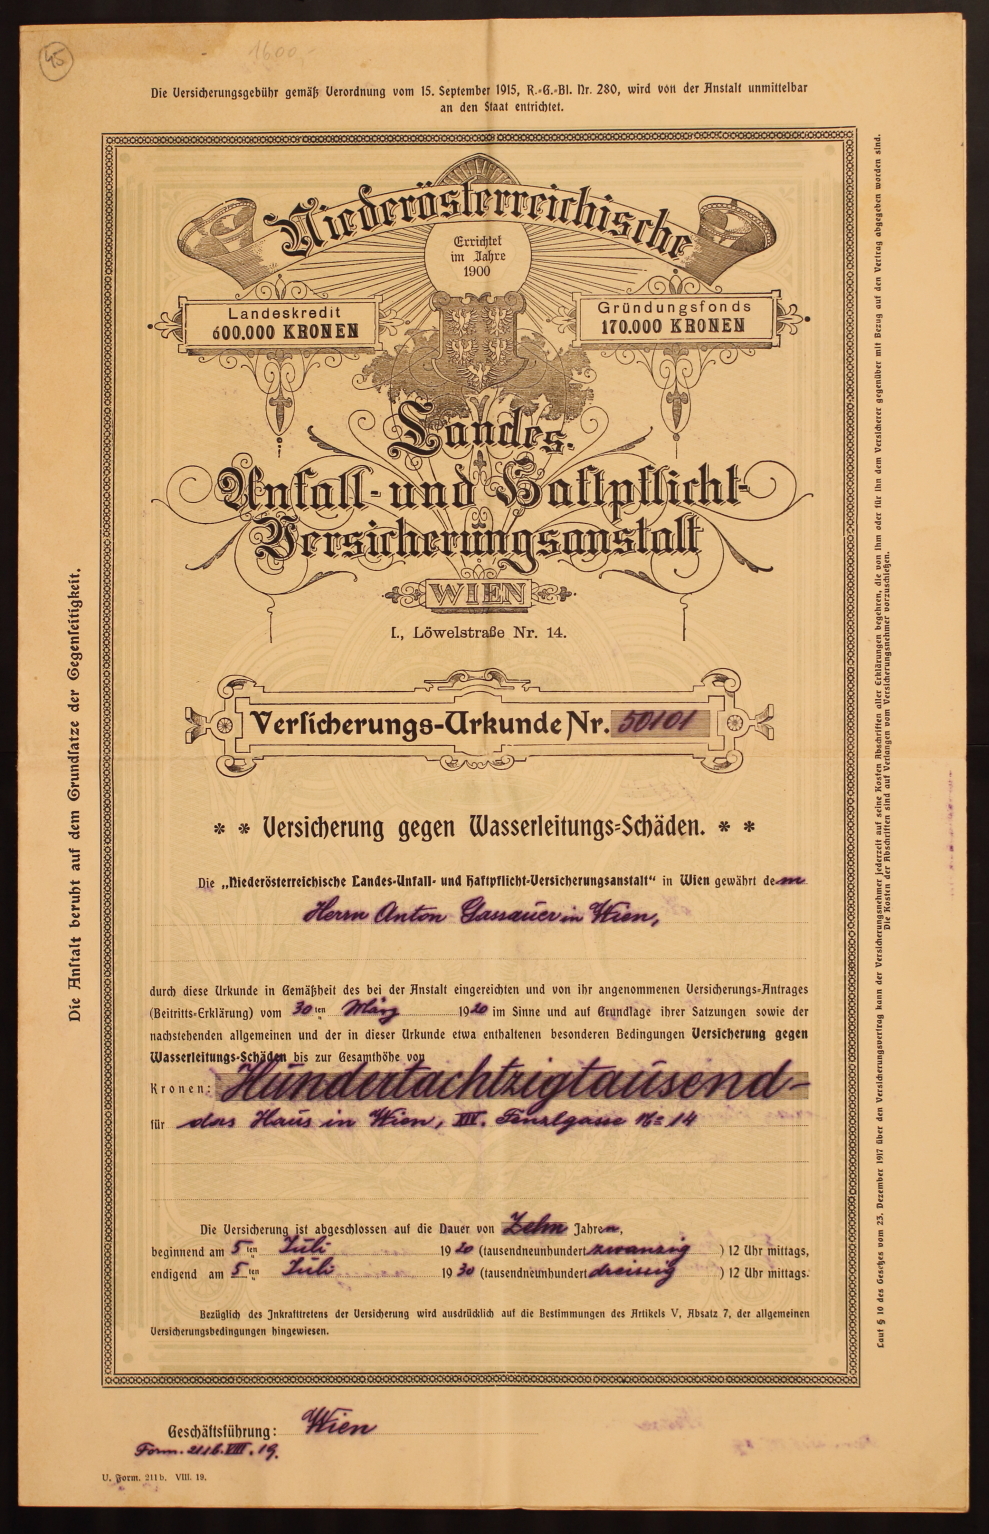 45
1600,-
Die Versicherungsgebühr gemäß Verordnung vom 15. September 1915, R.-G.-Bl. Nr. 280, wird von der Anstalt unmittelbar
an den Staat entrichtet.
Niederösterreichische
Errichtet
im Jahre
1900
Landeskredit
600.000 KRONEN
Gründungsfonds
170.000 KRONEN
Landes-
Unfall- und Haftpflicht-
Versicherungsanstalt
WIEN
I., Löwelstraße Nr. 14.
Versicherungs-Urkunde Nr. 50101
* * Versicherung gegen Wasserleitungs-Schäden. * *
Die „Niederösterreichische Landes-Unfall- und Haftpflicht-Versicherungsanstalt“ in Wien gewährt dem
Herrn Anton Gassauer in Wien,
durch diese Urkunde in Gemäßheit des bei der Anstalt eingereichten und von ihr angenommenen Versicherungs-Antrages
(Beitritts-Erklärung) vom 30ten März 1920 im Sinne und auf Grundlage ihrer Satzungen sowie der
nachstehenden allgemeinen und der in dieser Urkunde etwa enthaltenen besonderen Bedingungen Versicherung gegen
Wasserleitungs-Schäden bis zur Gesamthöhe von
Kronen: Hundertachtzigtausend-
für das Haus in Wien, XIV. Tenzlgasse No 14
Die Versicherung ist abgeschlossen auf die Dauer von Zehn Jahren,
beginnend am 5ten Juli 1920 (tausendneunhundert zwanzig ) 12 Uhr mittags,
endigend am 5ten Juli 1930 (tausendneunhundert dreissig ) 12 Uhr mittags.
Bezüglich des Inkrafttretens der Versicherung wird ausdrücklich auf die Bestimmungen des Artikels V, Absatz 7, der allgemeinen
Versicherungsbedingungen hingewiesen.
Geschäftsführung: Wien
Form. 211b. VIII. 19.
U. Form. 211b. VIII. 19.
Die Anstalt beruht auf dem Grundsatze der Gegenseitigkeit.
Laut § 10 des Gesetzes vom 23. Dezember 1917 über den Versicherungsvertrag kann der Versicherungsnehmer jederzeit auf seine Kosten Abschriften aller Erklärungen begehren, die von ihm oder für ihn dem Versicherer gegenüber mit Bezug auf den Vertrag abgegeben worden sind.
Die Kosten der Abschriften sind auf Verlangen vom Versicherungsnehmer vorzuschießen.